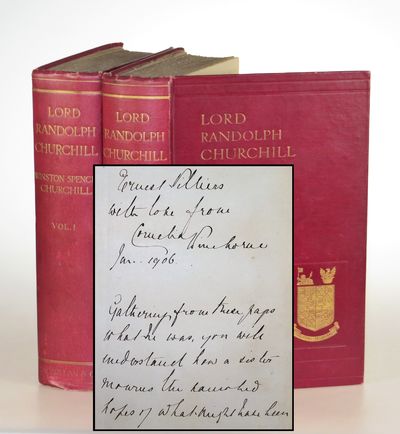 LORD
RANDOLPH
CHURCHILL
WINSTON SPENCE
CHURCHILL
VOL. I
MACMILLAN & C
LORD
RANDOLPH
CHURCHILL
LORD
RANDOLPH
CHURCHILL
Ernest Villiers
with love from
Cornelia Wimborne
Jan. 1906.
Gathering from these pages
what he was, you will
understand how a sister
mourns the vanished
hopes of what might have been